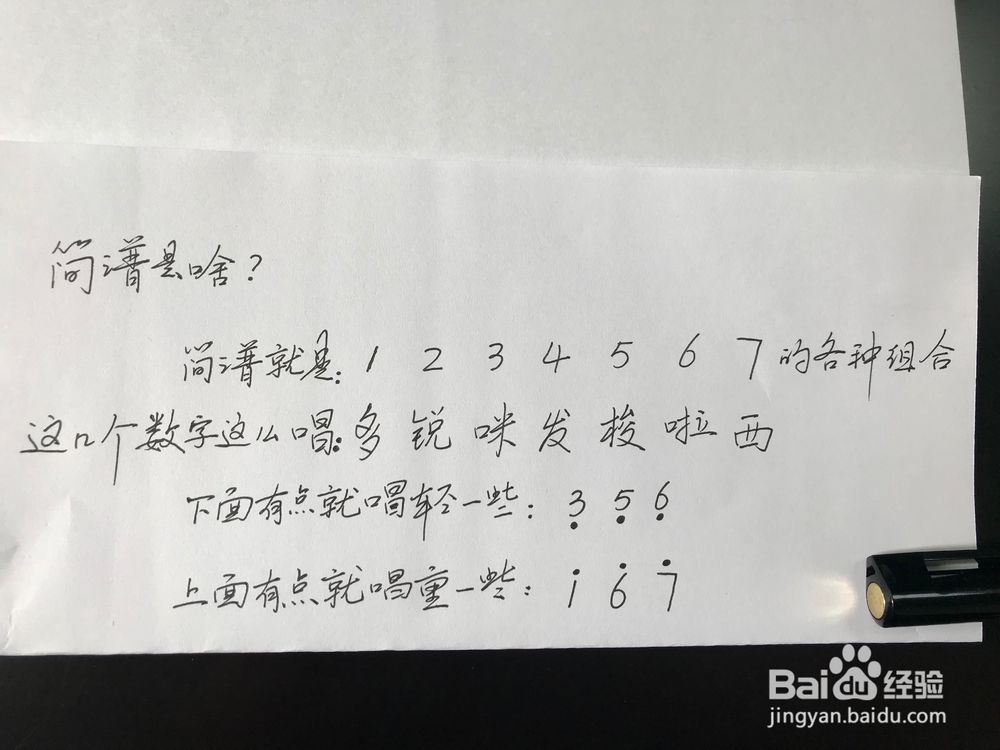 简谱是啥？
简谱就是：1 2 3 4 5 6 7 的各种组合
这几个数字这么唱：多 锐 咪 发 梭 啦 西
下面有点就唱轻一些：3̣ 5̣ 6̣
上面有点就唱重一些：1̇ 6̇ 7̇
Bai du 经验
jingyan.baidu.com